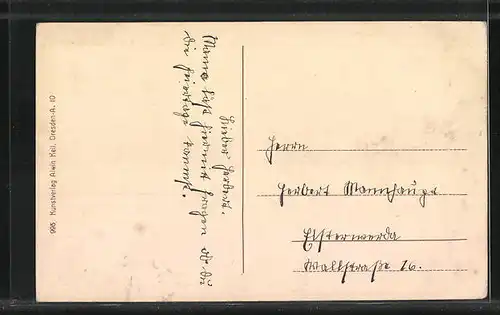 Lieber Herbert.
Mama läßt hiermit fragen ob Du
die Feiertage kommst.
Herrn
Herbert Mannhaupt
Elsterwerda
Wallstraße 16.
995 Kunstverlag Alwin Keil, Dresden-A. 10